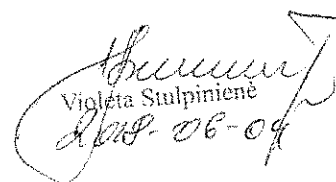 Violeta Stulpinienė
2018-06-04